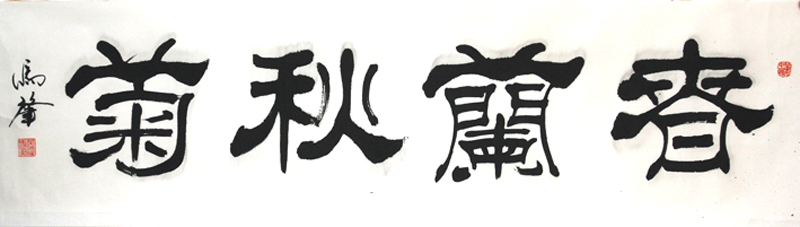 春蘭秋菊